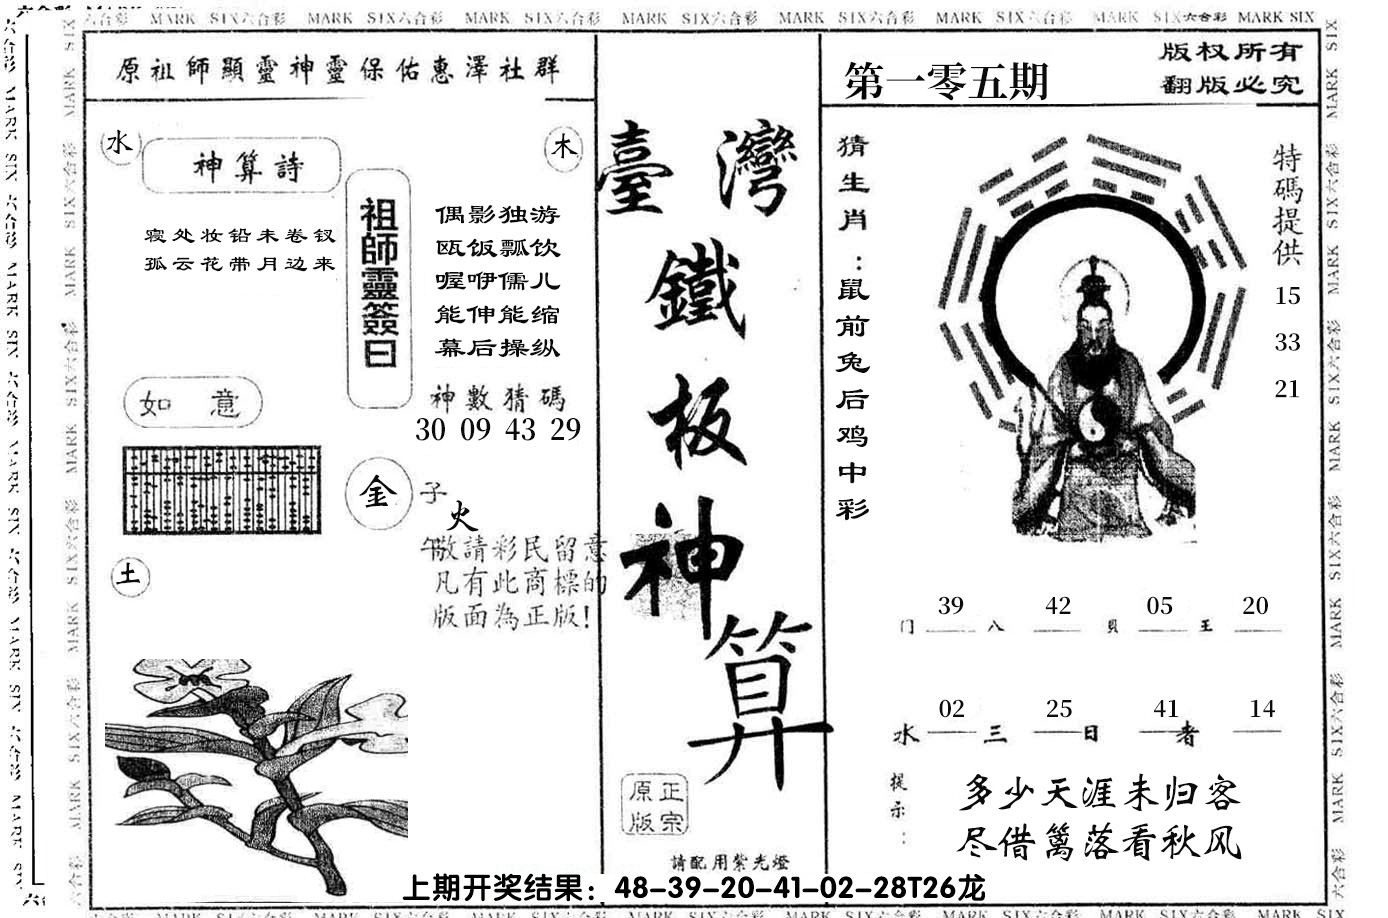 MARK SIX六合彩 MARK SIX六合彩 MARK SIX六合彩 MARK SIX六合彩 MARK SIX六合彩 MARK SIX六合彩 MARK SIX六合彩 MARK SIX
原祖師顯靈神靈保佑惠澤社群
水
神算詩
木
寝处妆铅未卷钗
孤云花带月边来
祖師靈簽曰
偶影独游
瓯饭瓢饮
喔咿儒儿
能伸能缩
幕后操纵
如意
神數猜碼
30 09 43 29
金
子
火
午
敬請彩民留意
凡有此商標的
版面為正版!
土
臺灣
鐵
板
神
算
正宗
原版
請配用紫光燈
第一零五期
版权所有
翻版必究
猜生肖:鼠前兔后鸡中彩
特碼提供
15
33
21
39 42 05 20
门 八 貝 王
02 25 41 14
水 三 日 者
提示:
多少天涯未归客
尽借篱落看秋风
上期开奖结果：48-39-20-41-02-28T26龙